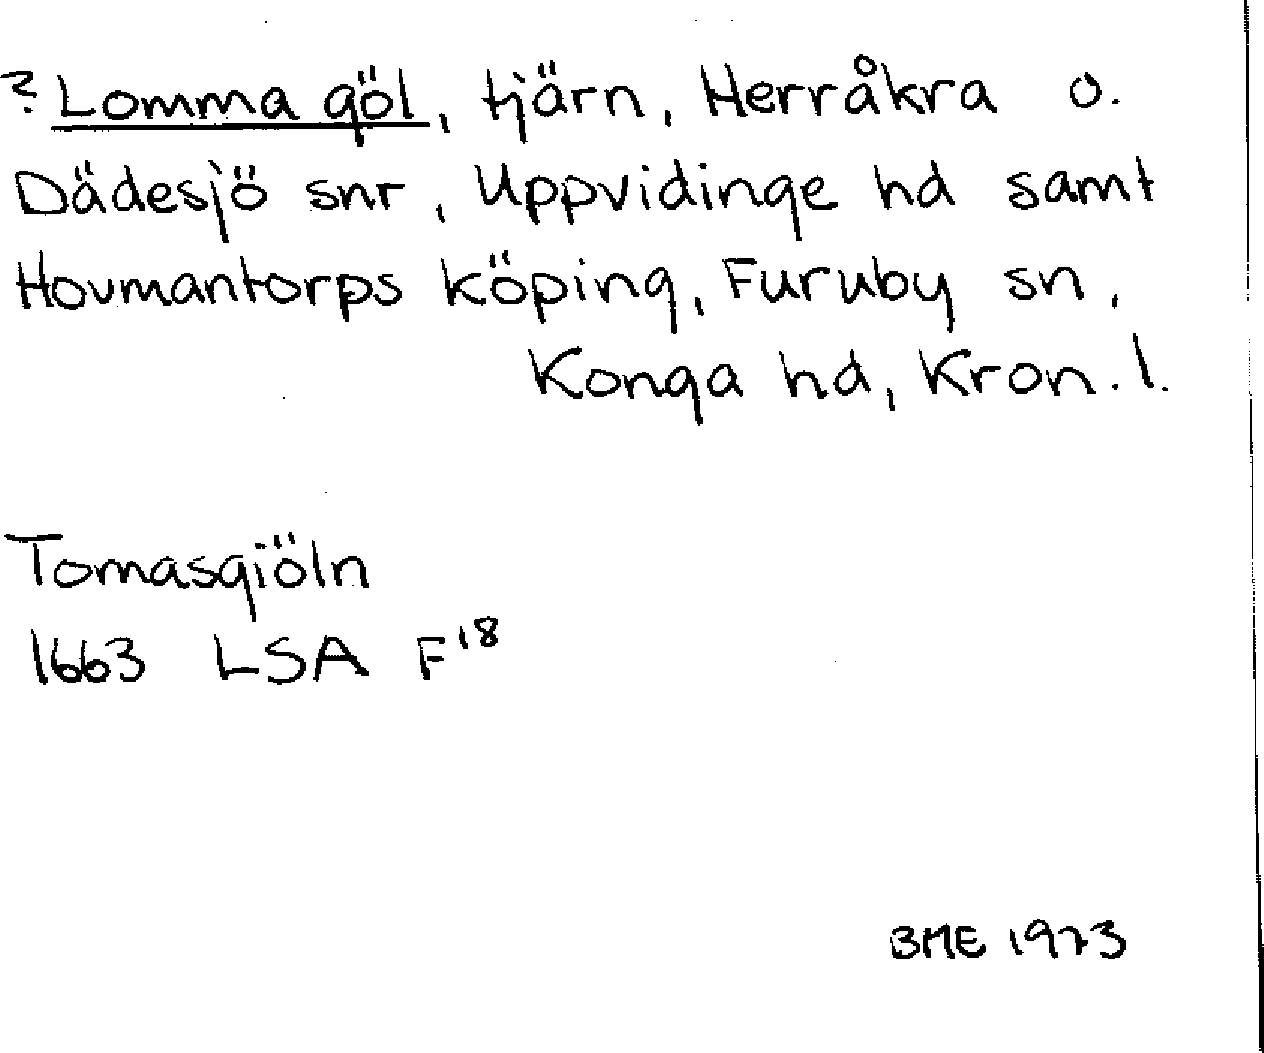 ? Lomma göl, tjärn, Herråkra o.
Dädesjö snr, Uppvidinge hd samt
Hovmantorps köping, Furuby sn,
Konga hd, Kron. l.
Tomasgiöln
1663 LSA F18
BME 1973